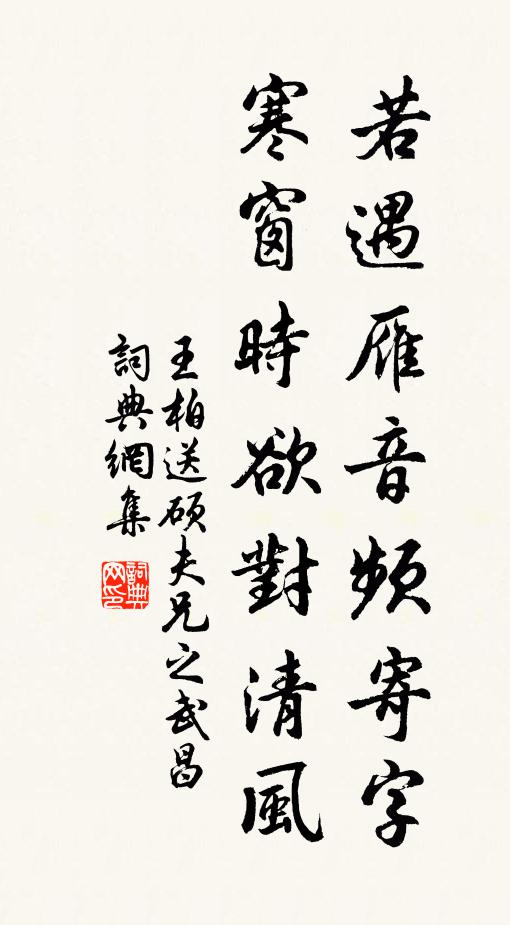 若遇雁音頻寄字
寒窗時欲對清風
王柏送硕夫兄之武昌
詞典網集
詞典网印